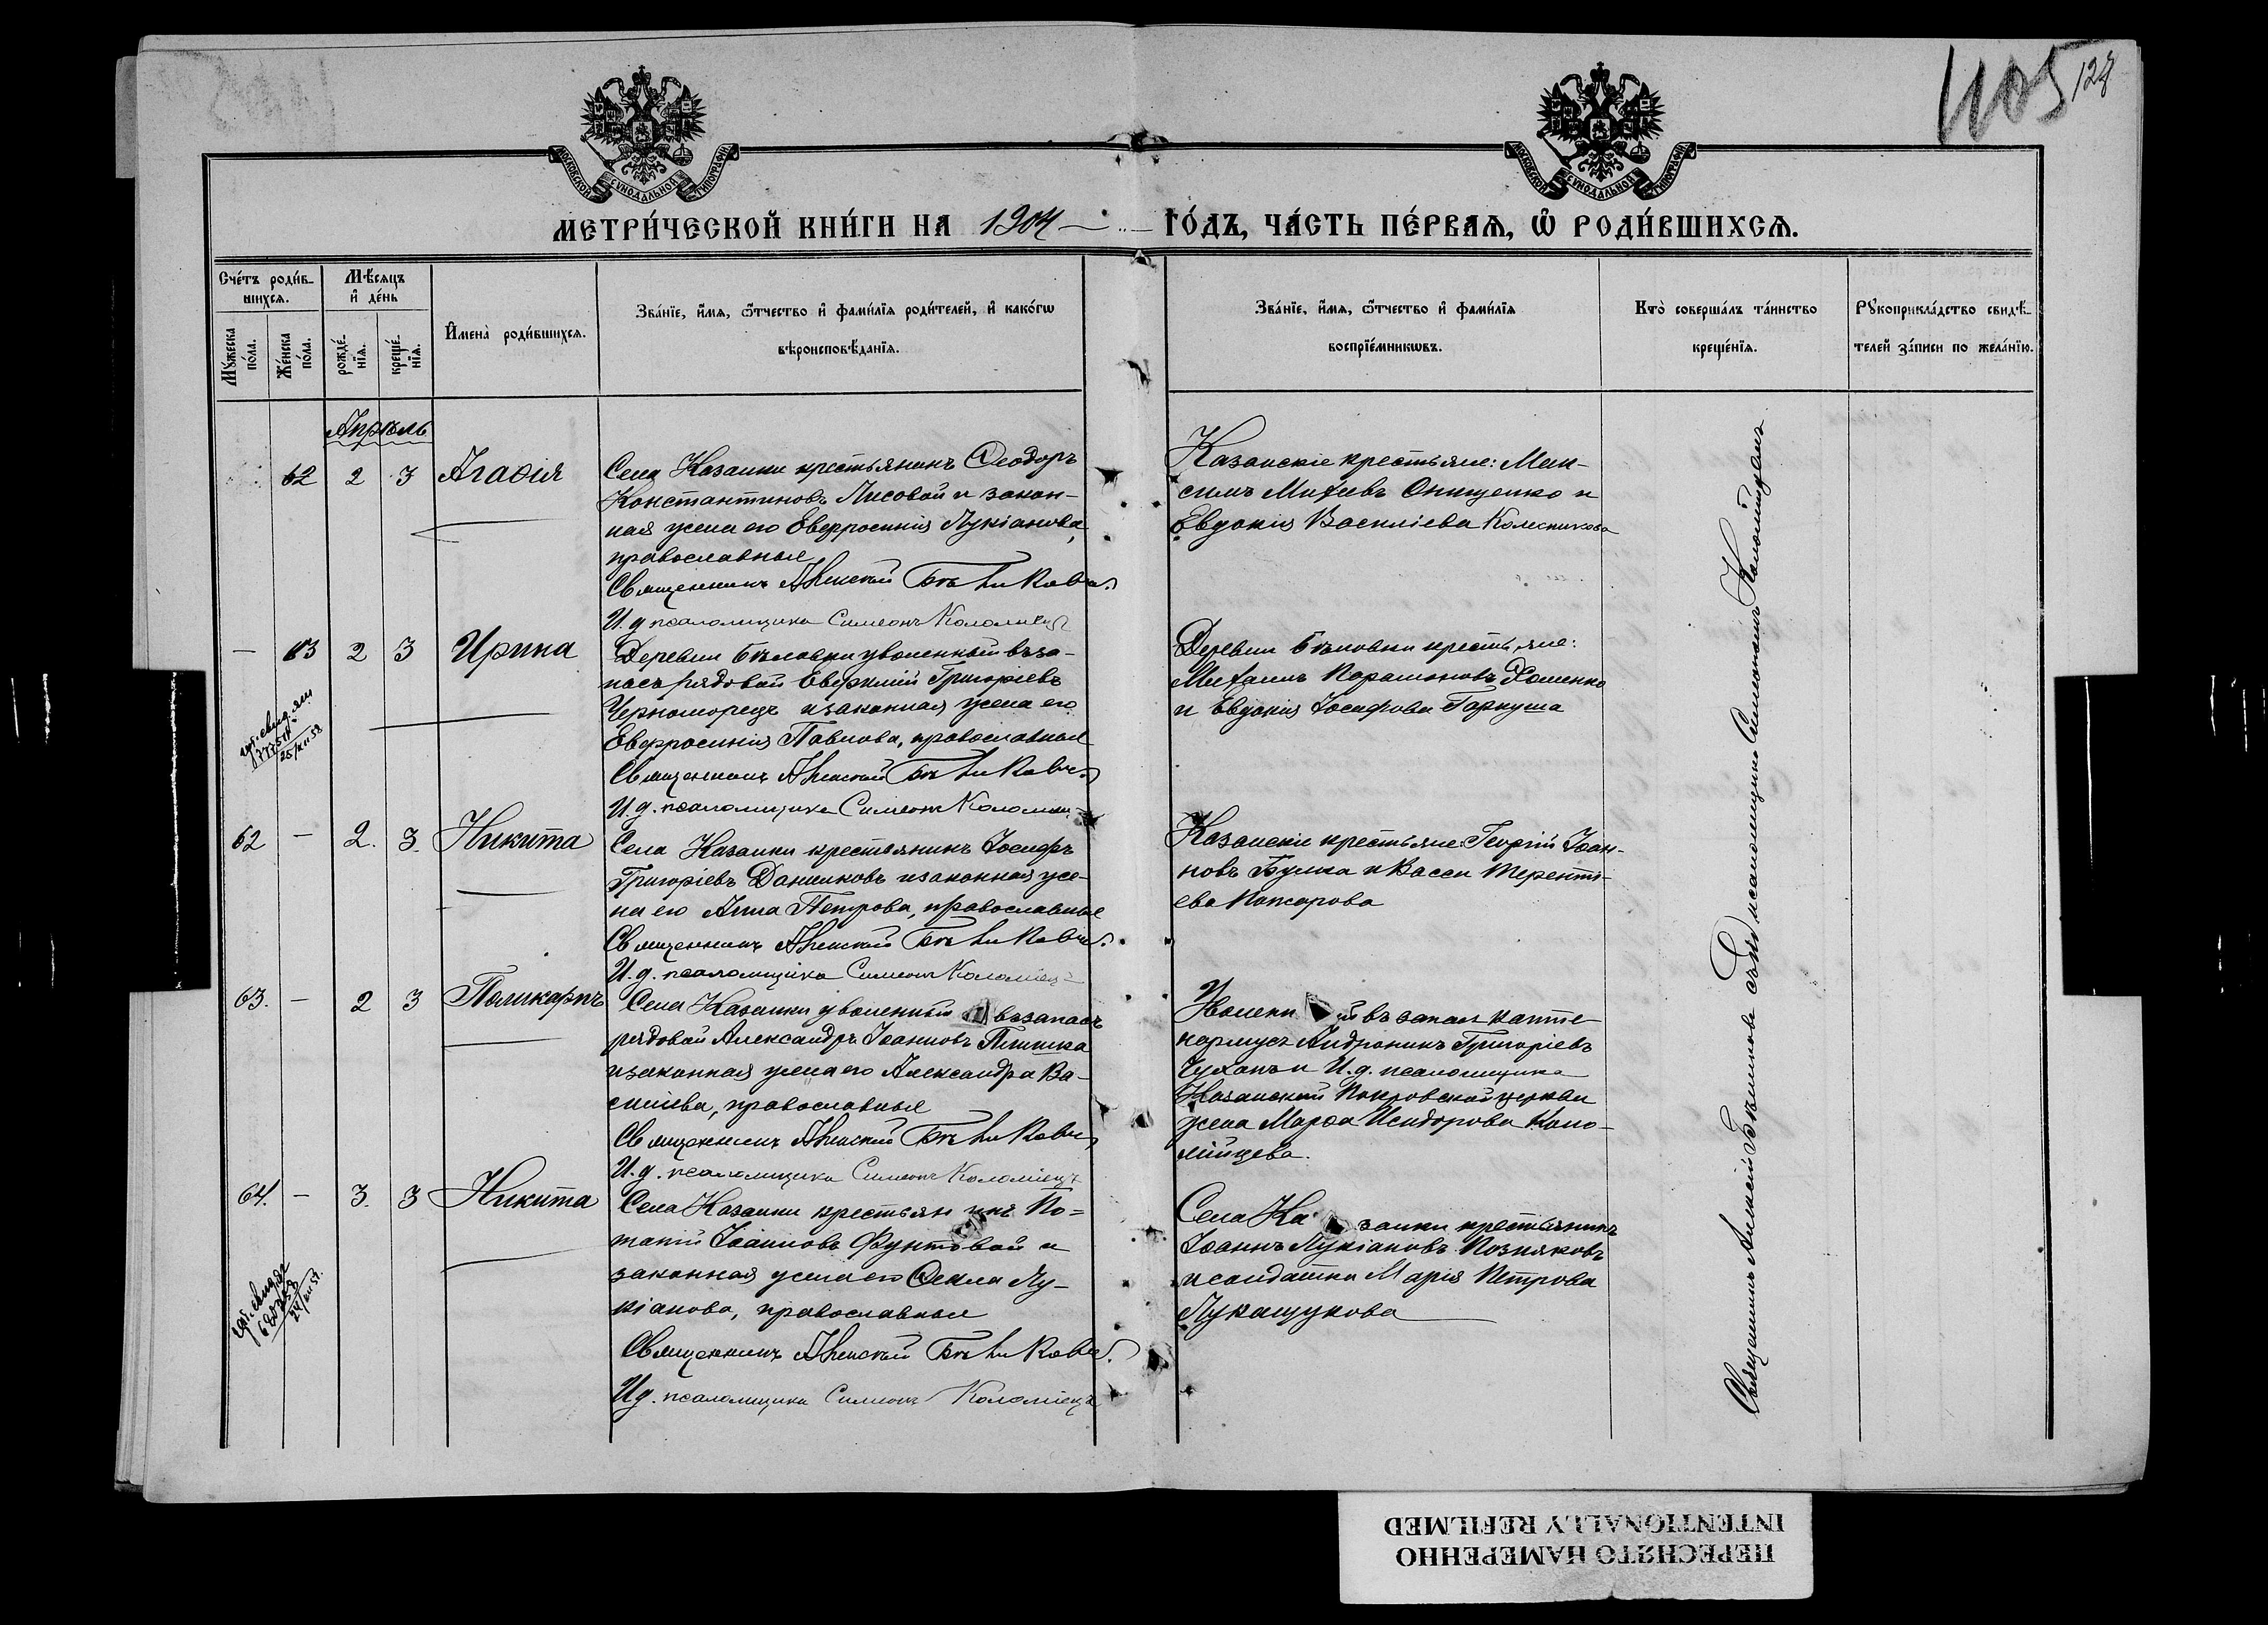 1105
127
МОСКОВСКОЙ СѴНОДАЛЬНОЙ ТИПОГРАФІИ
МОСКОВСКОЙ СѴНОДАЛЬНОЙ ТИПОГРАФІИ
МЕТРИ́ЧЕСКОЙ КНИ́ГИ НА 1904 ГО́ДЪ, ЧА́СТЬ ПЕ́РВАЯ, Ѽ РОДИ́ВШИХСЯ.
Сче́тъ роди́в-
шихся.
Мꙋ́жеска
по́ла.
Же́нска
по́ла.
Мѣ́сяцъ
и҆ де́нь
рожде́-
нїя.
креще́-
нїя.
И҆мена̀ роди́вшихся.
Зва́нїе, и҆́мя, ѻ҆́тчество и҆ фами́лїя роди́телей, и҆ како́гѡ
вѣроисповѣ́данїя.
Зва́нїе, и҆́мя, ѻ҆́тчество и҆ фами́лїя
воспрїе́мникѡвъ.
Кто̀ соверша́лъ та́инство
креще́нїя.
Рꙋкоприкла́дство свидѣ́-
телей за́писи по жела́нїю.
Апрѣль
62 2 3 Агаѳія
Села Казанки крестьянинъ Ѳеодоръ
Константиновъ Лисовой и закон-
ная жена его Евфросинія Лукіанова,
православные
Священникъ Алексій
И. д псаломщика Симеонъ Коломіецъ
Казанскіе крестьяне: Мак-
симъ Михеевъ Онищенко и
Евдокія Василіева Колесникова
— 63 2 3 Ирина
Деревни Бѣловки уволенный въ за-
пасъ рядовой Евфимій Григоріевъ
Черноморецъ и законная жена его
Евфросинія Павлова, православные
Священникъ Алексій
И. д. псаломщика Симеонъ Коломіец
Деревни Бѣловки крестьяне:
Михаилъ Парамоновъ Хоменко
и Евдокія Іосифова Гаркуша
25/XII 58
62 — 2. 3. Никита
Села Казанки крестьянинъ Іосифъ
Григоріевъ Данииковъ и законная же-
на его Анна Петрова, православные
Священникъ Алексій
И. д. псаломщика Симеонъ Коломіецъ
Казанскіе крестьяне: Георгій Іоан-
новъ Булка и Васса Терентi-
ева Пожарова
63. — 2 3 Поликарпъ
Села Казанки уволенный въ запасъ
рядовой Александръ Іоанновъ Плишка
и законная жена его Александра Ва-
силіева, православные
Священникъ Алексій
И. д. псаломщика Симеонъ Коломіецъ
Уволенный въ запасъ капте-
нармусъ Андроникъ Григоріевъ
и И. д. псаломщика
Казанской Покровской церкви
жена Марѳа Исидорова Коло-
мійцева.
64. — 3. 3 Никита
Села Казанки крестьянинъ По-
тапій Іоанновъ Фунтовой и
законная жена его Ѳекла Лу-
кіанова, православные
Священникъ Алексій
И д. псаломщика Симеонъ Коломіецъ
Села Казанки крестьянинъ
Іоаннъ Лукіановъ Позняковъ
и солдатка Марія Петрова
Лукащукова
Священникъ Алексій съ и д псаломщика Симеономъ Коломійцемъ
ПЕРЕСНЯТО НАМЕРЕННО
INTENTIONALLY REFILMED